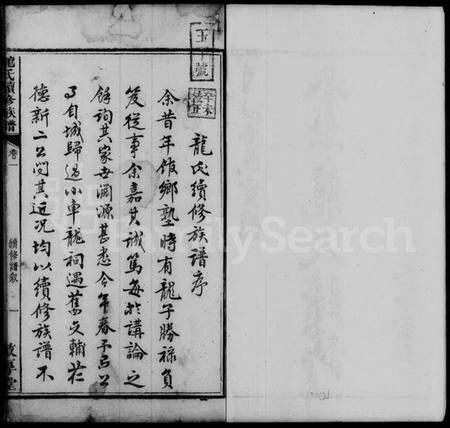 龍氏續修族譜序
余昔年館鄉塾時有龍子勝祿負
笈從事余嘉其誠篤每於講論之
餘詢其家世淵源甚悉今年春予因公
自城歸過小車龍祠遇舊文輔莊
德新二公問其近況均以續修族譜不
龍氏續修族譜
卷一
續修譜叙
一
敦厚堂
玉 號
MySearch